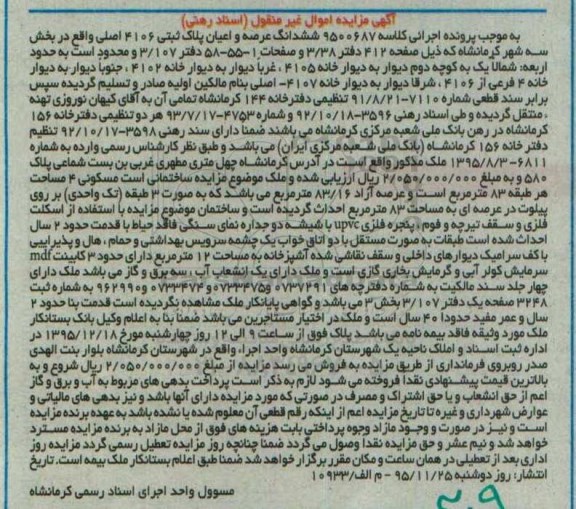 آگهی مزایده اموال غیر منقول (اسناد رهنی)
به موجب پرونده اجرائی کلاسه ۹۵۰۰۶۸۷ ششدانگ عرصه و اعیان پلاک ثبتی ۴۱۰۶ اصلی واقع در بخش
سه شهر کرمانشاه که ذیل صفحه ۴۱۲ دفتر ۳/۳۸ و صفحات ۱-۵۵-۵۸ دفتر ۳/۱۰۷ و محدود است به حدود
اربعه: شمالا یک به کوچه دوم دیوار به دیوار خانه ۴۱۰۵ ، غربا دیوار به دیوار خانه ۴۱۰۲ ، جنوبا دیوار به دیوار
خانه ۴ فرعی از ۴۱۰۶ ، شرقا دیوار به دیوار خانه ۴۱۰۷- اصلی بنام مالکین اولیه صادر و تسلیم گردیده سپس
برابر سند قطعی شماره ۷۱۱۰-۹۱/۸/۲۱ تنظیمی دفترخانه ۱۴۴ کرمانشاه تمامی آن به آقای کیهان نوروزی تهنه
، منتقل گردیده و طی اسناد رهنی ۳۵۹۶-۹۲/۱۰/۱۸ و شماره ۴۷۵۳-۹۳/۷/۱۷ هر دو تنظیمی دفترخانه ۱۵۶
کرمانشاه در رهن بانک ملی شعبه مرکزی کرمانشاه می باشند ضمنا دارای سند رهنی ۳۵۹۸-۹۲/۱۰/۱۷ تنظیم
دفتر خانه ۱۵۶ کرمانشاه (بانک ملی شعبه مرکزی ایران) می باشد و طبق نظر کارشناس رسمی وارده به شماره
۶۸۱۱-۱۳۹۵/۸/۳ ملک مذکور واقع است در آدرس کرمانشاه چهل متری مطهری غربی بن بست شماعی پلاک
۵۸۰ و به مبلغ ۲/۰۵۰/۰۰۰/۰۰۰ ریال ارزیابی شده و ملک موضوع مزایده ساختمانی است مسکونی ۴ مساحت
هر طبقه ۸۳ مترمربع است و عرصه آزاد ۸۳/۱۶ مترمربع می باشد که به صورت ۳ طبقه (تک واحدی) بر روی
پیلوت در عرصه ای به مساحت ۸۳ مترمربع احداث گردیده است و ساختمان موضوع مزایده با استفاده از اسکلت
فلزی و سقف تیرچه و فوم ، پنجره فلزی upvc با شیشه دو جداره نمای سنگی فاقد حیاط با قدمت حدود ۲ سال
احداث شده است طبقات به صورت مستقل با دو اتاق خواب یک چشمه سرویس بهداشتی و حمام ، هال و پذیرایی
با کف سرامیک دیوارهای داخلی و سقف نقاشی شده آشپزخانه به مساحت ۱۲ مترمربع دارای حدود ۳ کابینت mdf
سرمایش کولر آبی و گرمایش بخاری گازی است و ملک دارای یک انشعاب آب سه برق و گاز می باشد ملک دارای
چهار جلد سند مالکیت به شماره دفترچه های ۰۷۳۷۲۹۱ و ۰۷۳۳۴۷۵ و ۰۷۳۳۴۷۴ و ۹۶۲۹۹۰ به شماره ثبت
۳۲۴۸ صفحه یک دفتر ۳/۱۰۷ بخش ۳ می باشد و گواهی پایانکار ملک مشاهده نگردیده است قدمت بنا حدود ۲
سال و عمر مفید حدودا ۴۰ سال است و ملک در اختیار مستأجرین می باشد ضمنا بنا به اعلام وکیل بانک بستانکار
ملک مورد وثیقه فاقد بیمه نامه می باشد پلاک فوق از ساعت ۹ الی ۱۲ روز چهارشنبه مورخ ۱۳۹۵/۱۲/۱۸ در
اداره ثبت اسناد و املاک ناحیه یک شهرستان کرمانشاه واحد اجراء واقع در شهرستان کرمانشاه بلوار بنت الهدی
صدر روبروی فرمانداری از طریق مزایده به فروش می رسد مزایده از مبلغ ۲/۰۵۰/۰۰۰/۰۰۰ ریال شروع و به
بالاترین قیمت پیشنهادی نقدا فروخته می شود لازم به ذکر است پرداخت بدهی های مربوط به آب و برق و گاز
اعم از حق انشعاب و یا حق اشتراک و مصرف در صورتی که مورد مزایده دارای آنها باشد و نیز بدهی های مالیاتی و
عوارض شهرداری و غیره تا تاریخ مزایده اعم از اینکه رقم قطعی آن معلوم شده یا نشده باشد به عهده برنده مزایده
است و نیز در صورت و وجود مازاد وجوه پرداختی بابت هزینه های فوق از محل مازاد به برنده مزایده مسترد
خواهد شد و نیم عشر و حق مزایده نقدا وصول می گردد ضمنا چنانچه روز مزایده تعطیل رسمی گردد مزایده روز
اداری بعد از تعطیلی در همان ساعت و مکان مقرر برگزار خواهد شد ضمنا طبق اعلام بستانکار ملک بیمه است. تاریخ
انتشار: روز دوشنبه ۹۵/۱۱/۲۵ - م الف/۱۰۹۳۳
مسوول واحد اجرای اسناد رسمی کرمانشاه
۲۰۹